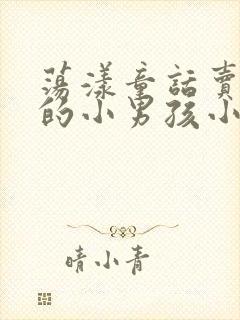 蕩漾童話賣
的小男孩小
晴小青